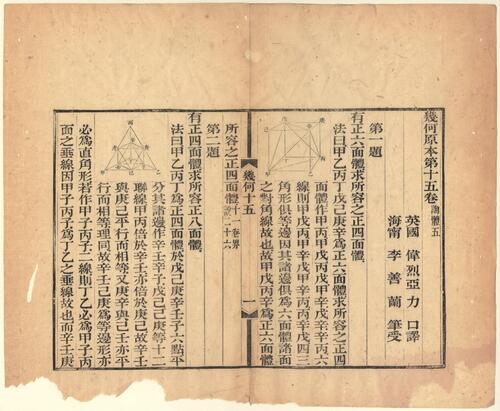 幾何原本第十五卷 論體五
英國 偉烈亞力 口譯
海甯 李善蘭 筆受
第一題
有正六面體求所容之正四面體
法曰甲乙丙丁戊己庚辛為正六面體求所容之正四
面體作甲丙甲戊丙戊甲辛戊辛辛丙六
線則甲戊丙甲戊辛甲辛丙丙戊辛四三
角形俱等邊因其諸邊俱為六面體諸面
之對角線故也故甲戊丙辛為正六面體
幾何十五 一
所容之正四面體 十一卷界二十六
第二題
有正四面體求所容正八面體
法曰甲乙丙丁為正四面體於戊己庚辛壬子六點平
分其諸邊作辛壬辛子戊己己庚等十二
聯線甲丙倍於辛壬亦倍於庚己故辛壬
與庚己平行而相等又庚辛與己壬亦平
行而相等理同故辛壬己庚為等邊形亦
必為直角形若作甲子丙子二線則丁乙必為甲子丙
面之垂線因甲子丙子為丁乙之垂線故也而辛壬庚